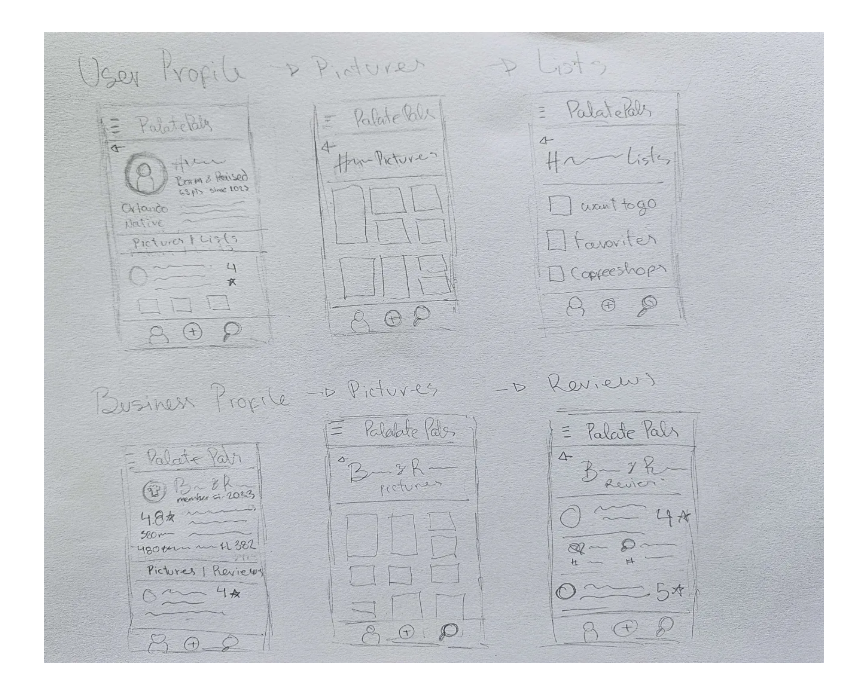 User Profile → Pictures → Lists
PalatePals
Born & Raised
since 2023
Orlando
Native
Pictures | Lists
4
PalatePals
Pictures
PalatePals
Lists
want to go
Favorites
Coffeeshops
Business Profile → Pictures → Reviews
Palate Pals
B & R
member 2023
4.8★
Pictures | Reviews
4★
Palalate Pals
B & R
Pictures
Palate Pals
B & R
Review
4★
5★